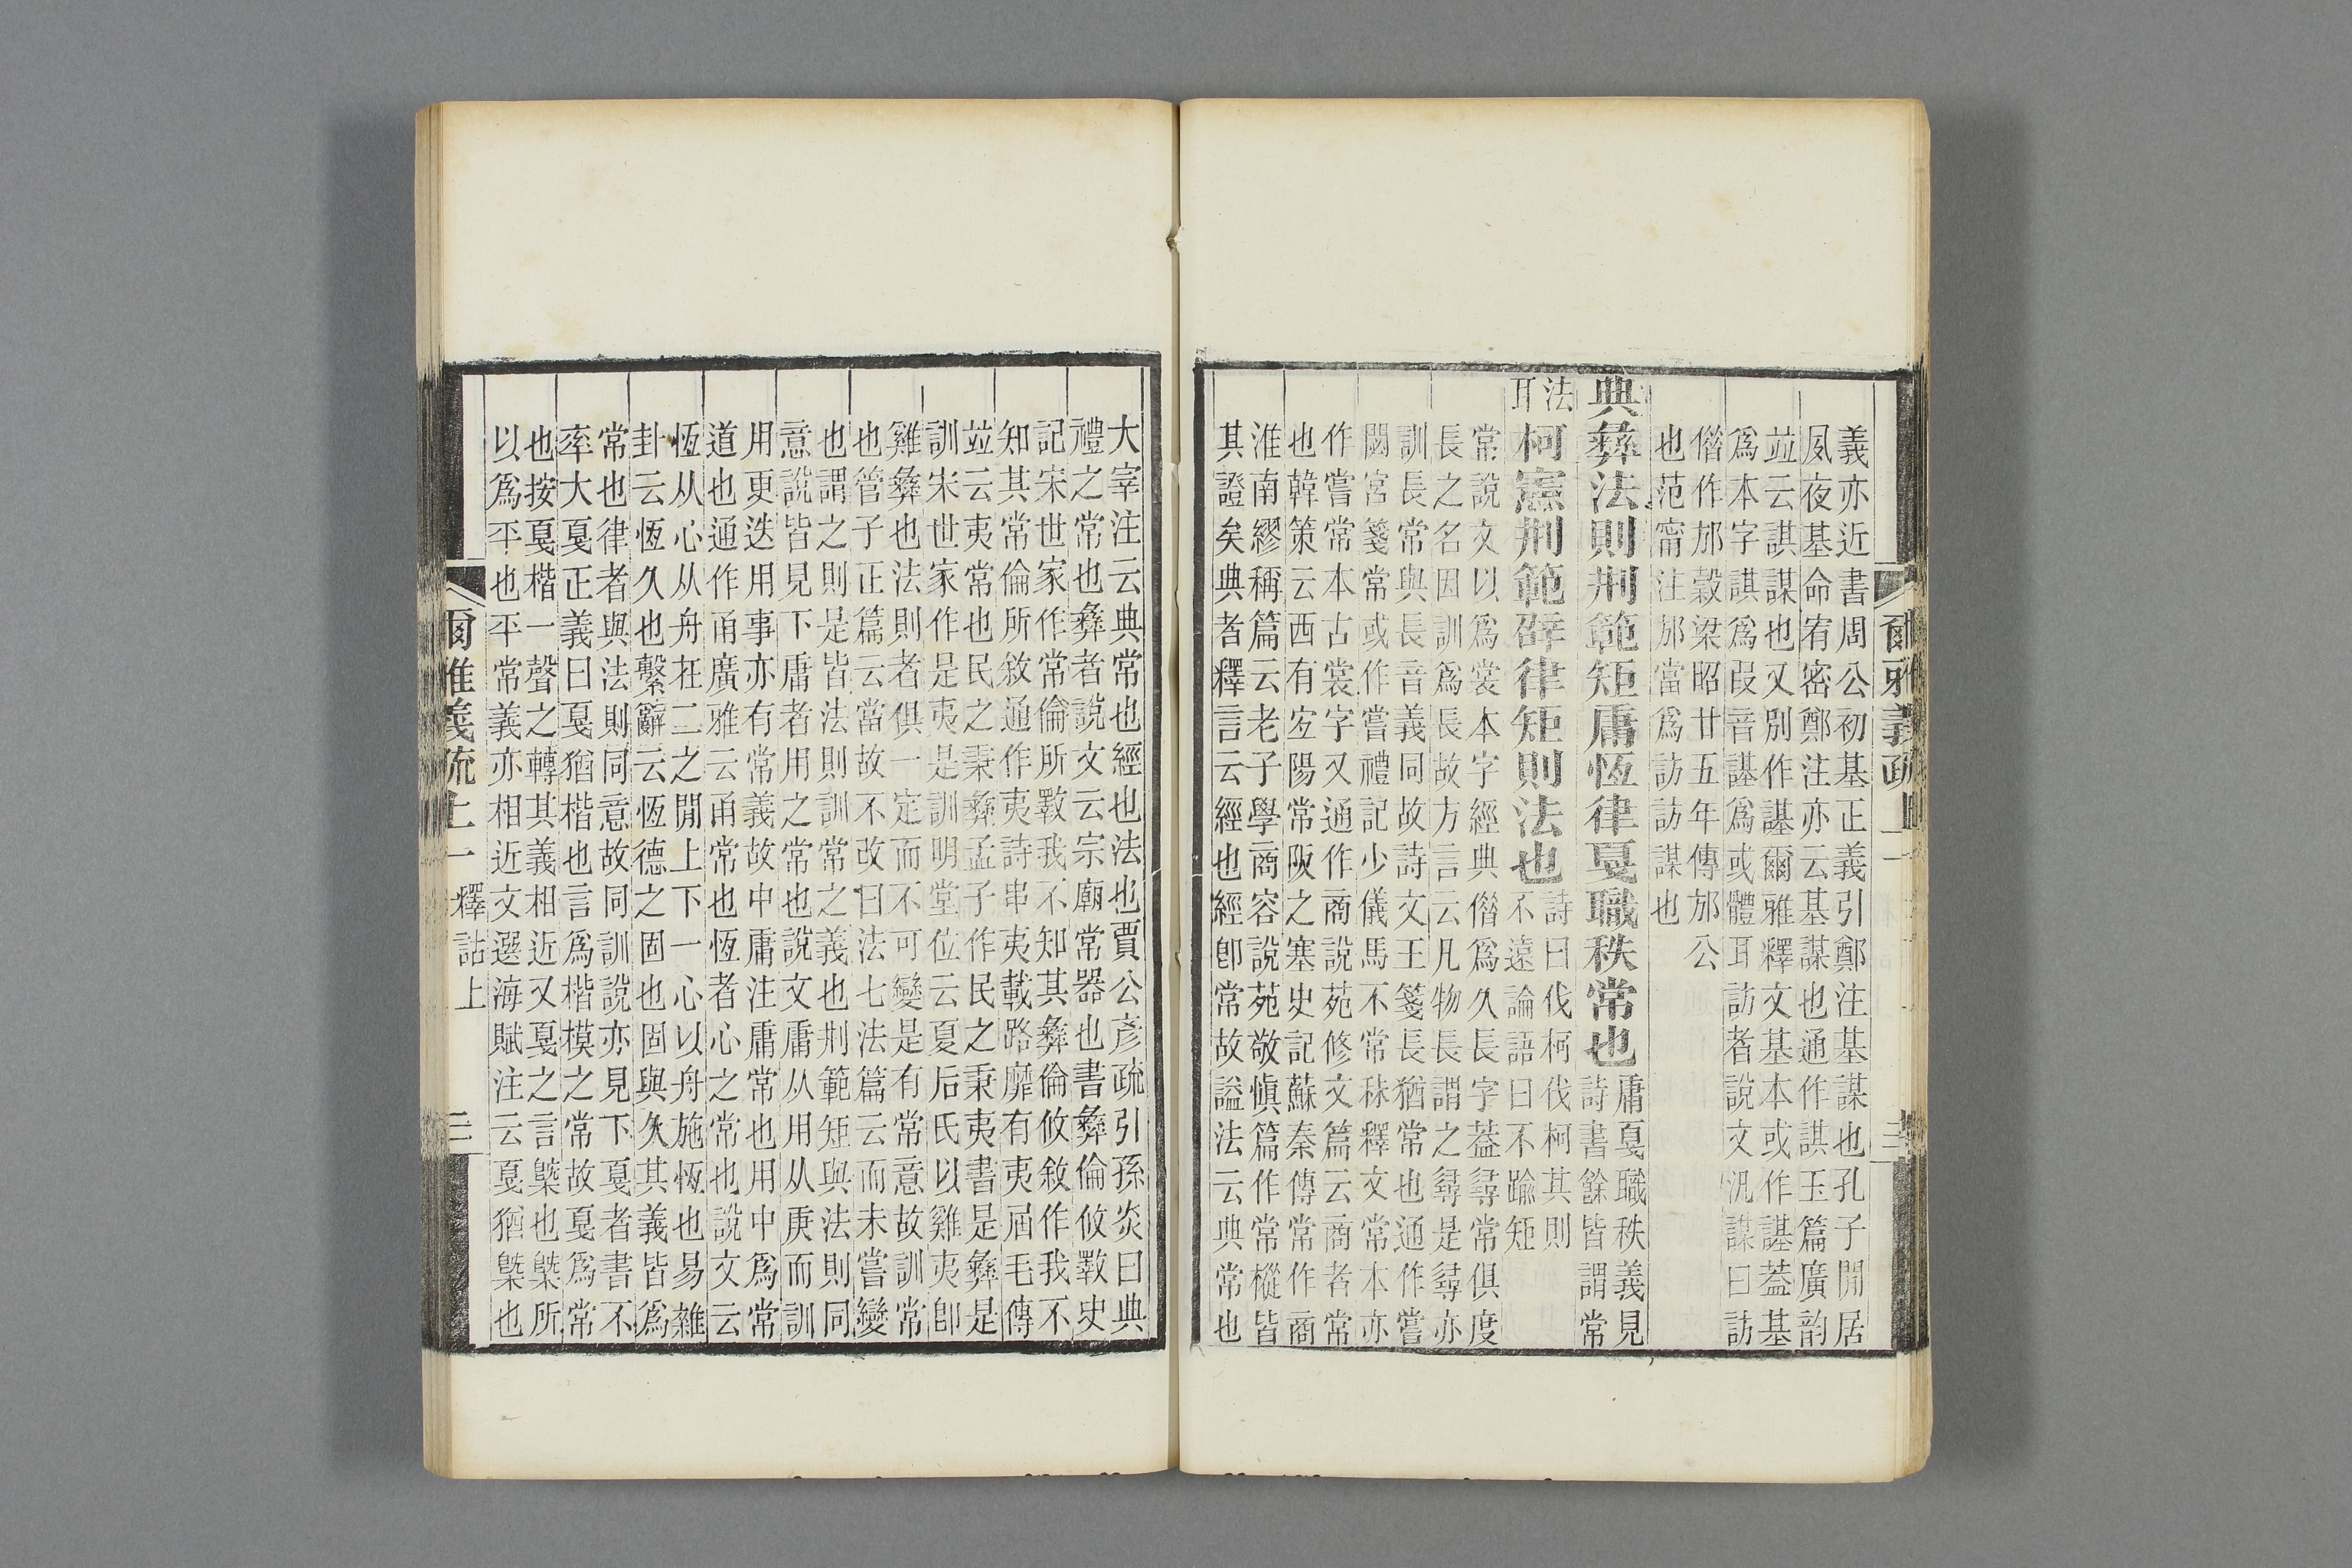 義亦近書周公初基正義引鄭注基謀也孔子閒居
夙夜基命宥密鄭注亦云基謀也通作諆玉篇廣韵
竝云諆謀也又別作諅爾雅釋文基本或作諅葢基
爲本字諆爲叚音諅爲或體耳訪者說文汎謀曰訪
僭作邡穀梁昭廿五年傳邡公
也范甯注邡當爲訪訪謀也
典彝法則刑範矩庸恆律戛職秩常也
庸戛職秩義見
詩書餘皆謂常
法
耳
柯憲刑範辟律矩則法也
詩曰伐柯伐柯其則
不遠論語曰不踰矩
常說文以爲裳本字經典僭爲久長字葢尋常俱度
長之名因訓爲長故方言云凡物長謂之尋是尋亦
訓長常與長音義同故詩文王箋長猶常也通作嘗
閟宮箋常或作嘗禮記少儀馬不常秣釋文常本亦
作嘗常本古裳字又通作商說苑修文篇云商者常
也韓策云西有宜陽常阪之塞史記蘇秦傳常作商
淮南繆稱篇云老子學商容說苑敬愼篇作常樅皆
其證矣典者釋言云經也經卽常故謚法云典常也
爾雅義疏上一
大宰注云典常也經也法也賈公彥疏引孫炎曰典
禮之常也彝者說文云宗廟常器也書彝倫攸斁史
記宋世家作常倫所斁我不知其彝倫攸敘作我不
知其常倫所敘通作夷詩串夷載路靡有夷屆毛傳
竝云夷常也民之秉彝孟子作民之秉夷書是彝是
訓宋世家作是夷是訓明堂位云夏后氏以雞夷卽
雞彝也法則者俱一定而不可變是有常意故訓常
也管子正篇云當故不改曰法七法篇云而未嘗變
也謂之則是皆法則訓常之義也刑範矩與法則同
意說皆見下庸者用之常也說文庸从用从庚而訓
用更迭用事亦有常義故中庸注庸常也用中爲常
道也通作甬廣雅云甬常也恆者心之常也說文云
恆从心从舟在二之閒上下一心以舟施恆也易雜
卦云恆久也繫辭云恆德之固也固與久其義皆爲
常也律者與法則同意故同訓說亦見下戛者書不
率大戛正義曰戛猶楷也言爲楷模之常故戛爲常
也按戛楷一聲之轉其義相近又戛之言槩也槩所
以爲平也平常義亦相近文選海賦注云戛猶槩也
爾雅義疏上一
釋詁上
三